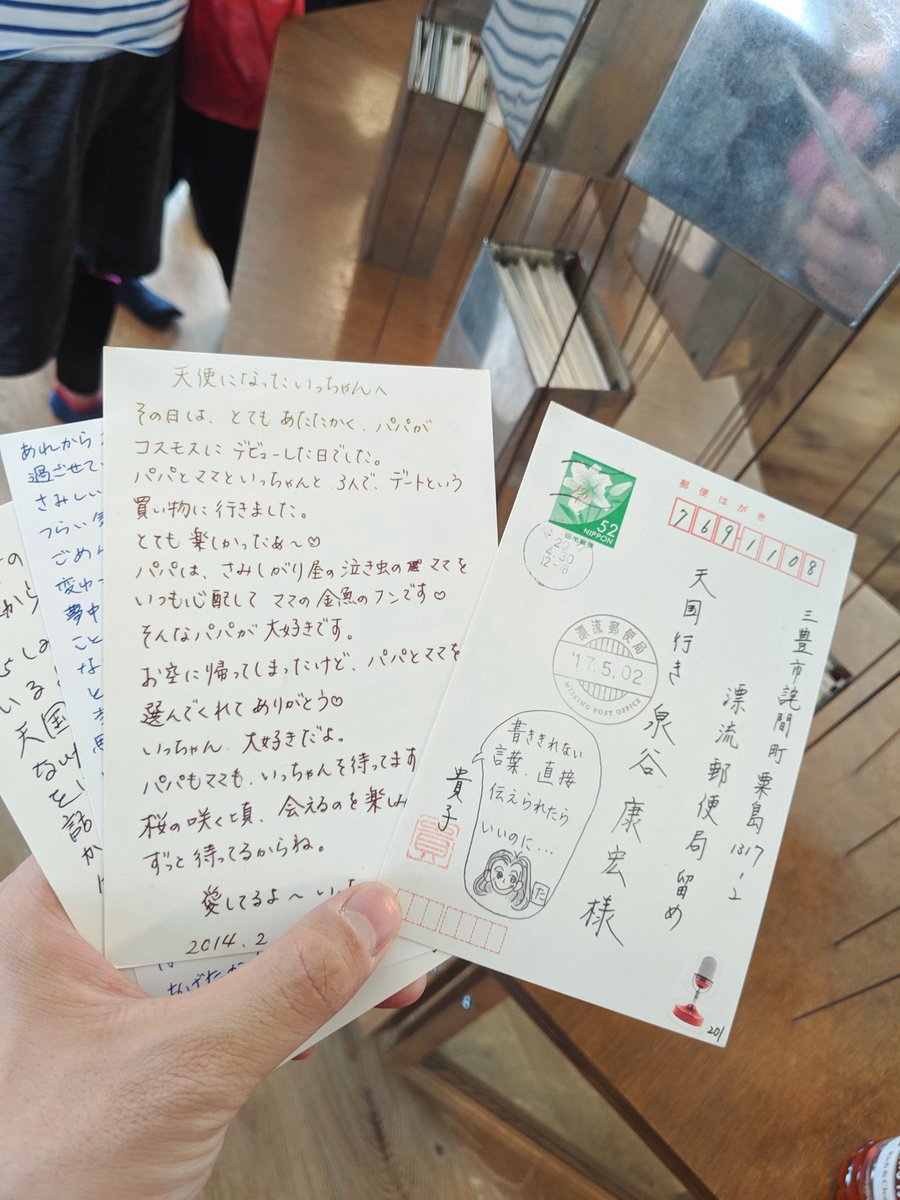 天使になったいっちゃんへ
その日は、とてもあたたかく、パパが
コスモスにデビューした日でした。
パパとママといっちゃんと、3人で、デートという
買い物に行きました。
とても楽しかったぁ～♡
パパは、さみしがり屋の泣き虫のママを
いつも心配してママの金魚のフンです♡
そんなパパが大好きです。
お空に帰ってしまったけど、パパとママを
選んでくれてありがとう♡
いっちゃん、大好きだよ。
パパもママも、いっちゃんを待ってます
桜の咲く頃、会えるのを楽しみ
ずっと待ってるからね。
愛してるよ～いっ
2014.2
あれから
過ごせて
さみしい
つらい
ごめん
変わっ
夢中
こと
な
と
の
から
いる
天国
ない
を
話
か
郵便はがき
769-1108
52
NIPPON
日本郵便
29
4.30
12-18
漂流郵便局
'17.5.02
MISSING POST OFFICE
三豊市詫間町粟島1317-2
漂流郵便局留め
天国行き 泉谷康宏様
書ききれない
言葉、直接
伝えられたら
いいのに…
た
貴子
201